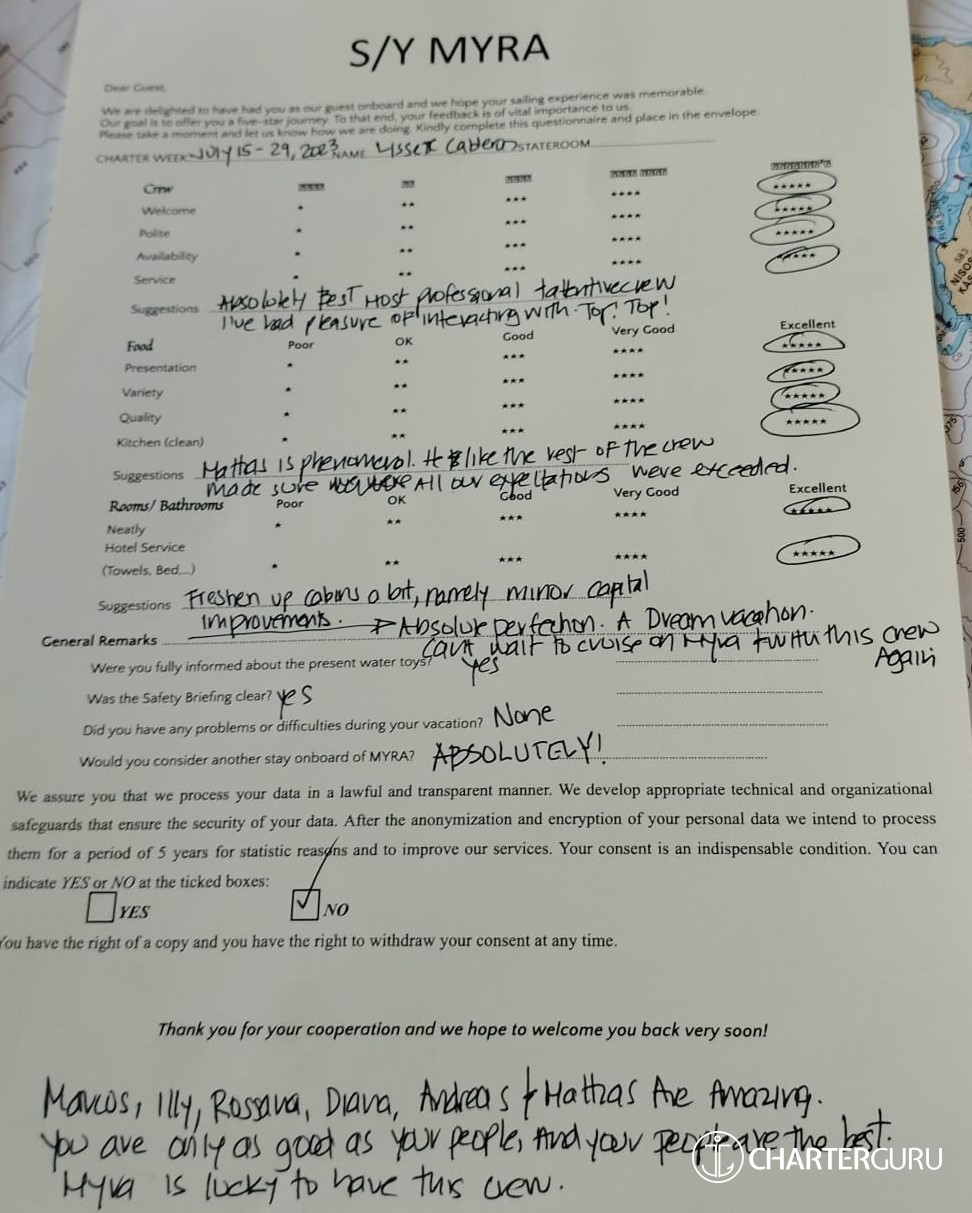 S/Y MYRA
Dear Guest,
We are delighted to have had you as our guest onboard and we hope your sailing experience was memorable.
Our goal is to offer you a five-star journey. To that end, your feedback is of vital importance to us.
Please take a moment and let us know how we are doing. Kindly complete this questionnaire and place in the envelope.
CHARTER WEEK JULY 15-29, 2023 NAME STATEROOM
Crew
Welcome * ** *** **** *****
Polite * ** *** **** *****
Availability * ** *** **** *****
Service * ** *** **** *****
Suggestions Absolutely Best Most professional crew
I've had pleasure of interacting with. Top! Top!
Food Poor OK Good Very Good Excellent
Presentation * ** *** **** *****
Variety * ** *** **** *****
Quality * ** *** **** *****
Kitchen (clean) * ** *** **** *****
Suggestions Mathas is phenomenal. like the rest of the crew
made sure All our expectations were exceeded.
Rooms/ Bathrooms Poor OK Good Very Good Excellent
Neatly * ** *** **** *****
Hotel Service
(Towels, Bed,...) * ** *** **** *****
Suggestions Freshen up cabins a bit, namely minor capital
improvements. → Absolute perfection. A Dream vacation.
General Remarks Can't wait to cruise on Myra + with this crew
Again
Were you fully informed about the present water toys? Yes
Was the Safety Briefing clear? yes
Did you have any problems or difficulties during your vacation? None
Would you consider another stay onboard of MYRA? ABSOLUTELY!
We assure you that we process your data in a lawful and transparent manner. We develop appropriate technical and organizational
safeguards that ensure the security of your data. After the anonymization and encryption of your personal data we intend to process
them for a period of 5 years for statistic reasons and to improve our services. Your consent is an indispensable condition. You can
indicate YES or NO at the ticked boxes:
YES NO
You have the right of a copy and you have the right to withdraw your consent at any time.
Thank you for your cooperation and we hope to welcome you back very soon!
Marcos, Illy, Rossana, Diana, Andreas + Mathas Are Amazing.
You are only as good as your people, And your people are the best.
Myra is lucky to have this crew.
CHARTERGURU